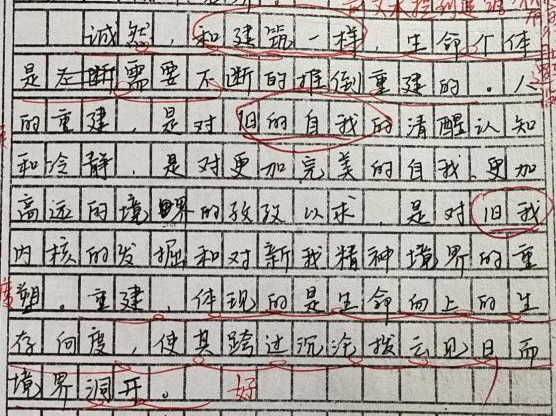 诚然，和建筑一样，生命个体
是在断需要不断的推倒重建的。人
的重建，是对旧的自我的清醒认知
和冷静，是对更加完美的自我、更加
高远的境界的孜孜以求，是对旧我
内核的发掘和对新我精神境界的重
塑。重建，体现的是生命向上的生
存向度，使其跨过沉沦拨云见日而
境界洞开。好